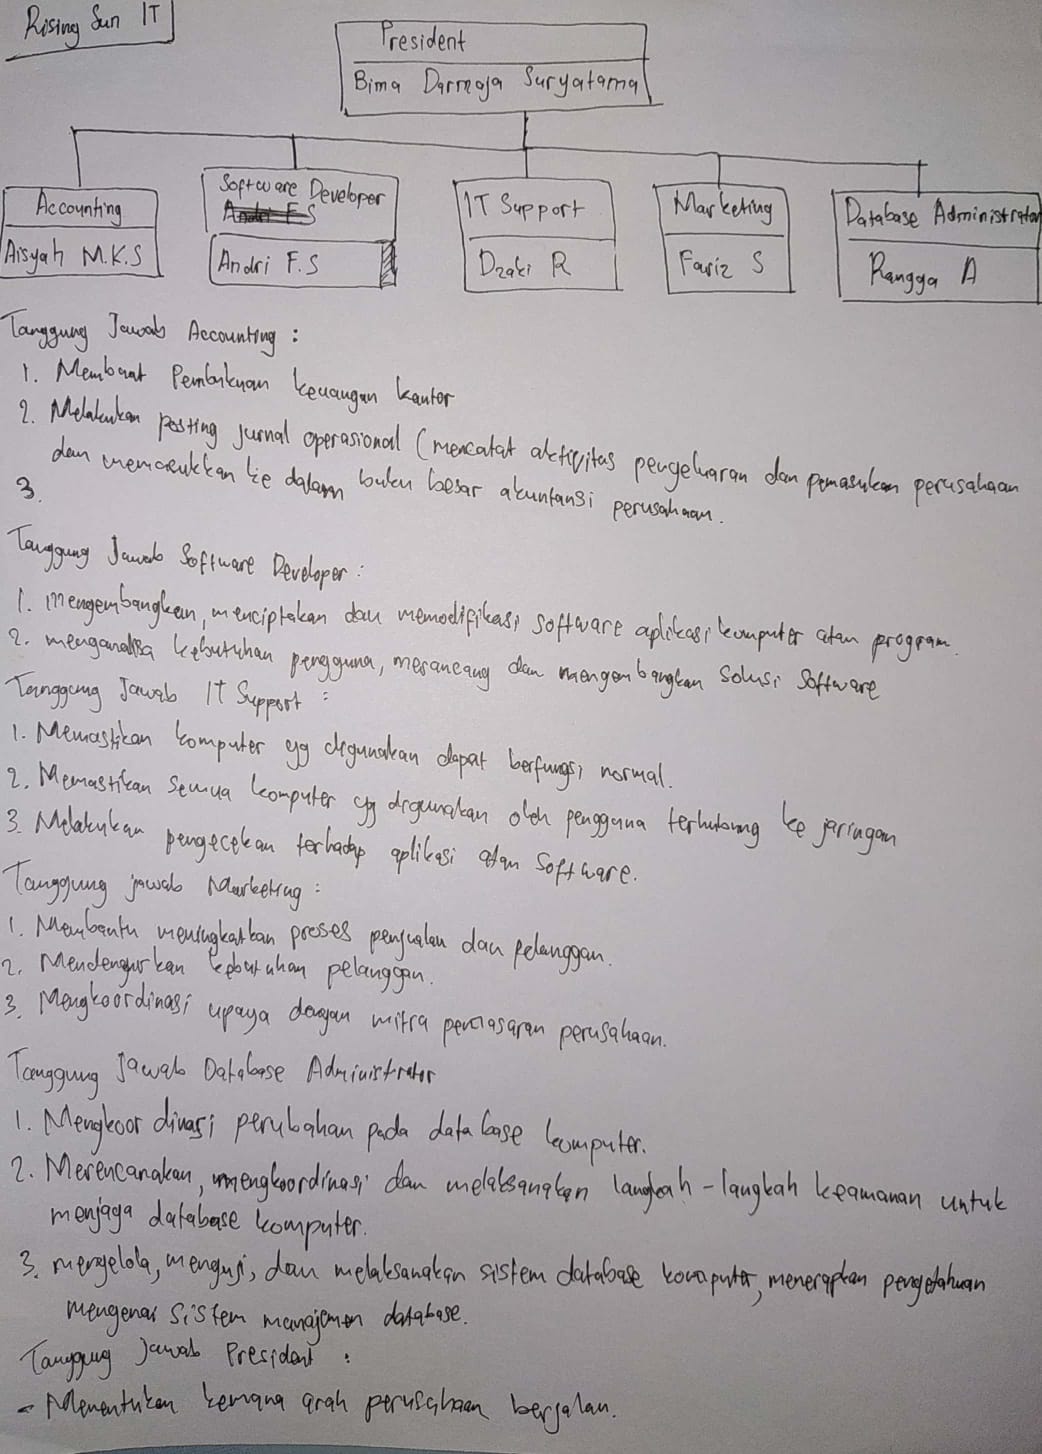 Rising Sun IT
President
Bima Darmoja Suryatama
Accounting
Aisyah M.K.S
Software Developer
Andri F S
Andri F.S
IT Support
Dzaki R
Marketing
Fariz S
Database Administrator
Rangga A
Tanggung Jawab Accounting :
1. Membuat Pembukuan keuangan kantor
2. Melakukan posting jurnal operasional (mencatat aktifitas pengeluaran dan pemasukan perusahaan
dan memasukkan ke dalam buku besar akuntansi perusahaan.
3.
Tanggung Jawab Software Developer :
1. mengembangkan, menciptakan dan memodifikasi software aplikasi komputer atau program.
2. menganalisa kebutuhan pengguna, merancang dan mengembangkan Solusi Software
Tanggung Jawab IT Support :
1. Memastikan komputer yg digunakan dapat berfungsi normal.
2. Memastikan semua komputer yg digunakan oleh pengguna terhubung ke jaringan
3. Melakukan pengecekan terhadap aplikasi atau Software.
Tanggung jawab Marketing :
1. Membantu meningkatkan proses penjualan dan pelanggan.
2. Mendengarkan kebutuhan pelanggan.
3. Mengkoordinasi upaya dengan mitra pemasaran perusahaan.
Tanggung Jawab Database Administrator
1. Mengkoordinasi perubahan pada database komputer.
2. Merencanakan, mengkoordinasi dan melaksanakan langkah - langkah keamanan untuk
menjaga database komputer.
3. mengelola, menguji, dan melaksanakan sistem database komputer, menerapkan pengetahuan
mengenai sistem manajemen database.
Tanggung Jawab President :
- Menentukan kemana arah perusahaan berjalan.